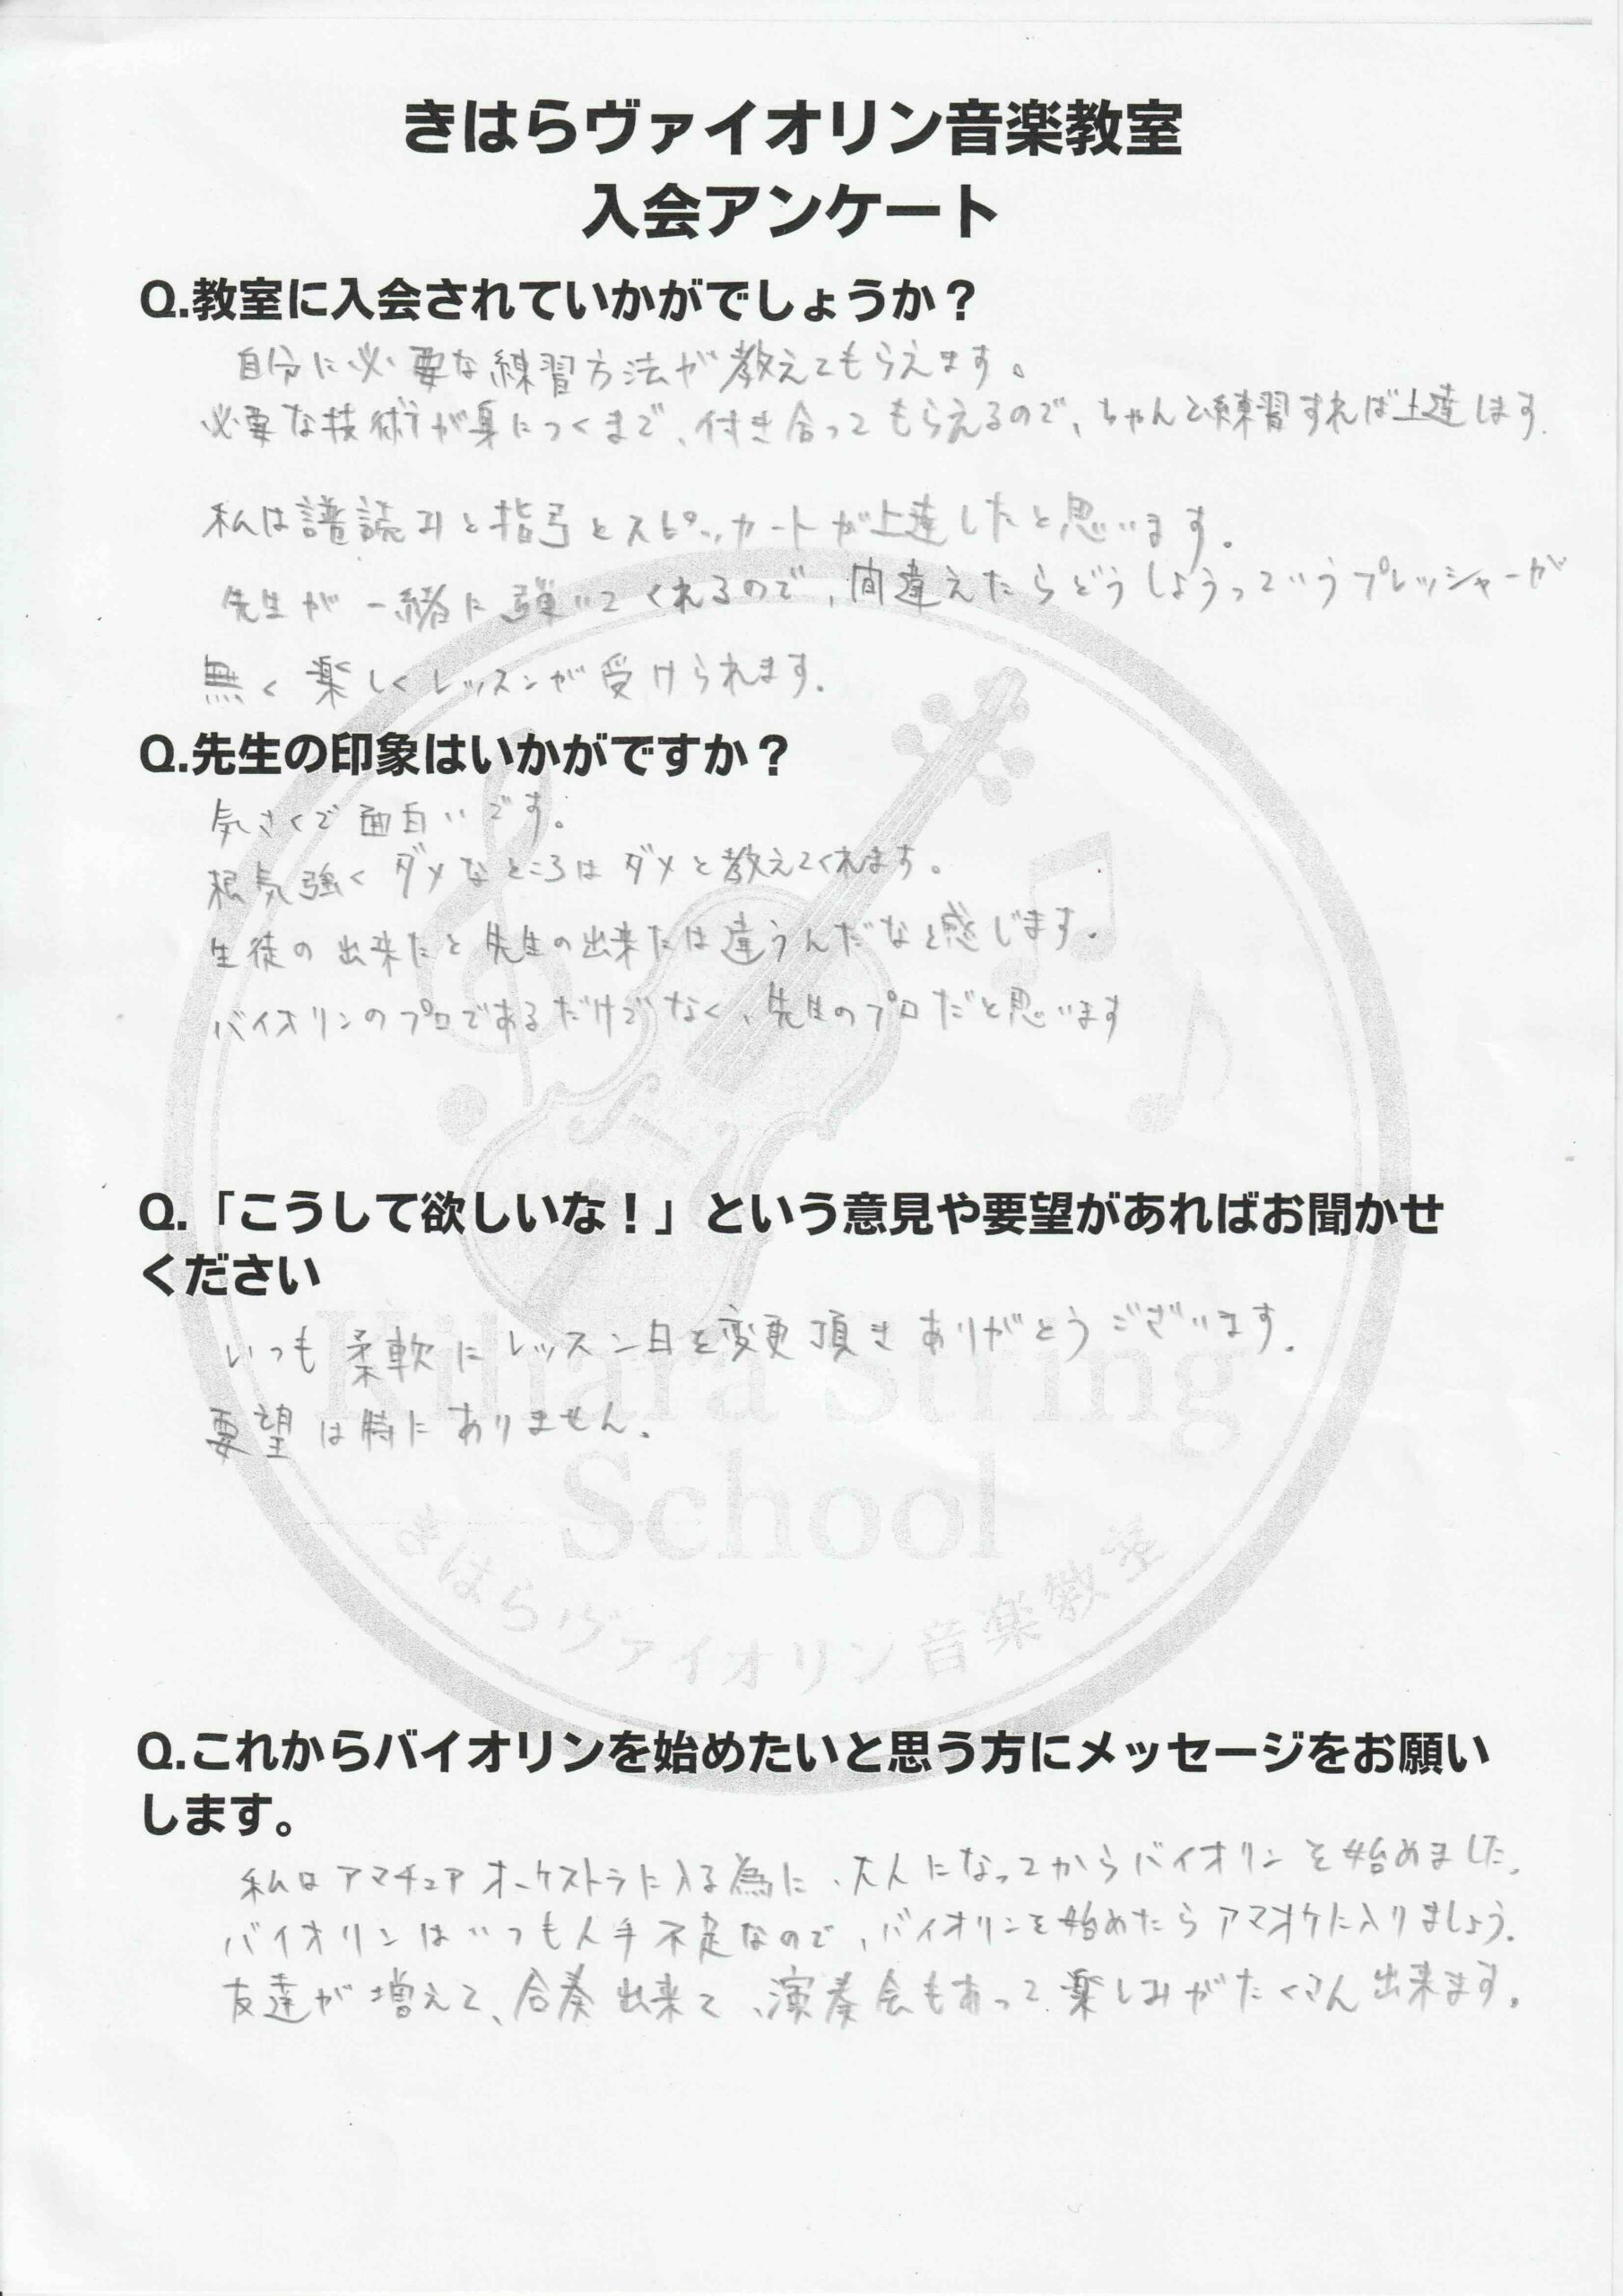 きはらヴァイオリン音楽教室
入会アンケート
Q.教室に入会されていかがでしょうか？
自分に必要な練習方法が教えてもらえます。
必要な技術が身につくまで、付き合ってもらえるので、ちゃんと練習すれば上達します.
私は譜読みと指弓とスピッカートが上達したと思います。
先生が一緒に弾いてくれるので、間違えたらどうしようっていうプレッシャーが
無く楽しくレッスンが受けられます.
Q.先生の印象はいかがですか？
気さくで面白いです。
根気強くダメなところはダメと教えてくれます。
生徒の出来たと先生の出来たは違うんだなと感じます.
バイオリンのプロであるだけでなく、先生のプロだと思います
Q.「こうして欲しいな！」という意見や要望があればお聞かせ
ください
いつも柔軟にレッスン日を変更頂きありがとうございます.
要望は特にありません.
Kihara String
School
きはらヴァイオリン音楽教室
Q.これからバイオリンを始めたいと思う方にメッセージをお願い
します。
私はアマチュアオーケストラに入る為に、大人になってからバイオリンを始めました.
バイオリンはいつも人手不足なので、バイオリンを始めたらアマオケに入りましょう.
友達が増えて、合奏出来て、演奏会もあって楽しみがたくさん出来ます.